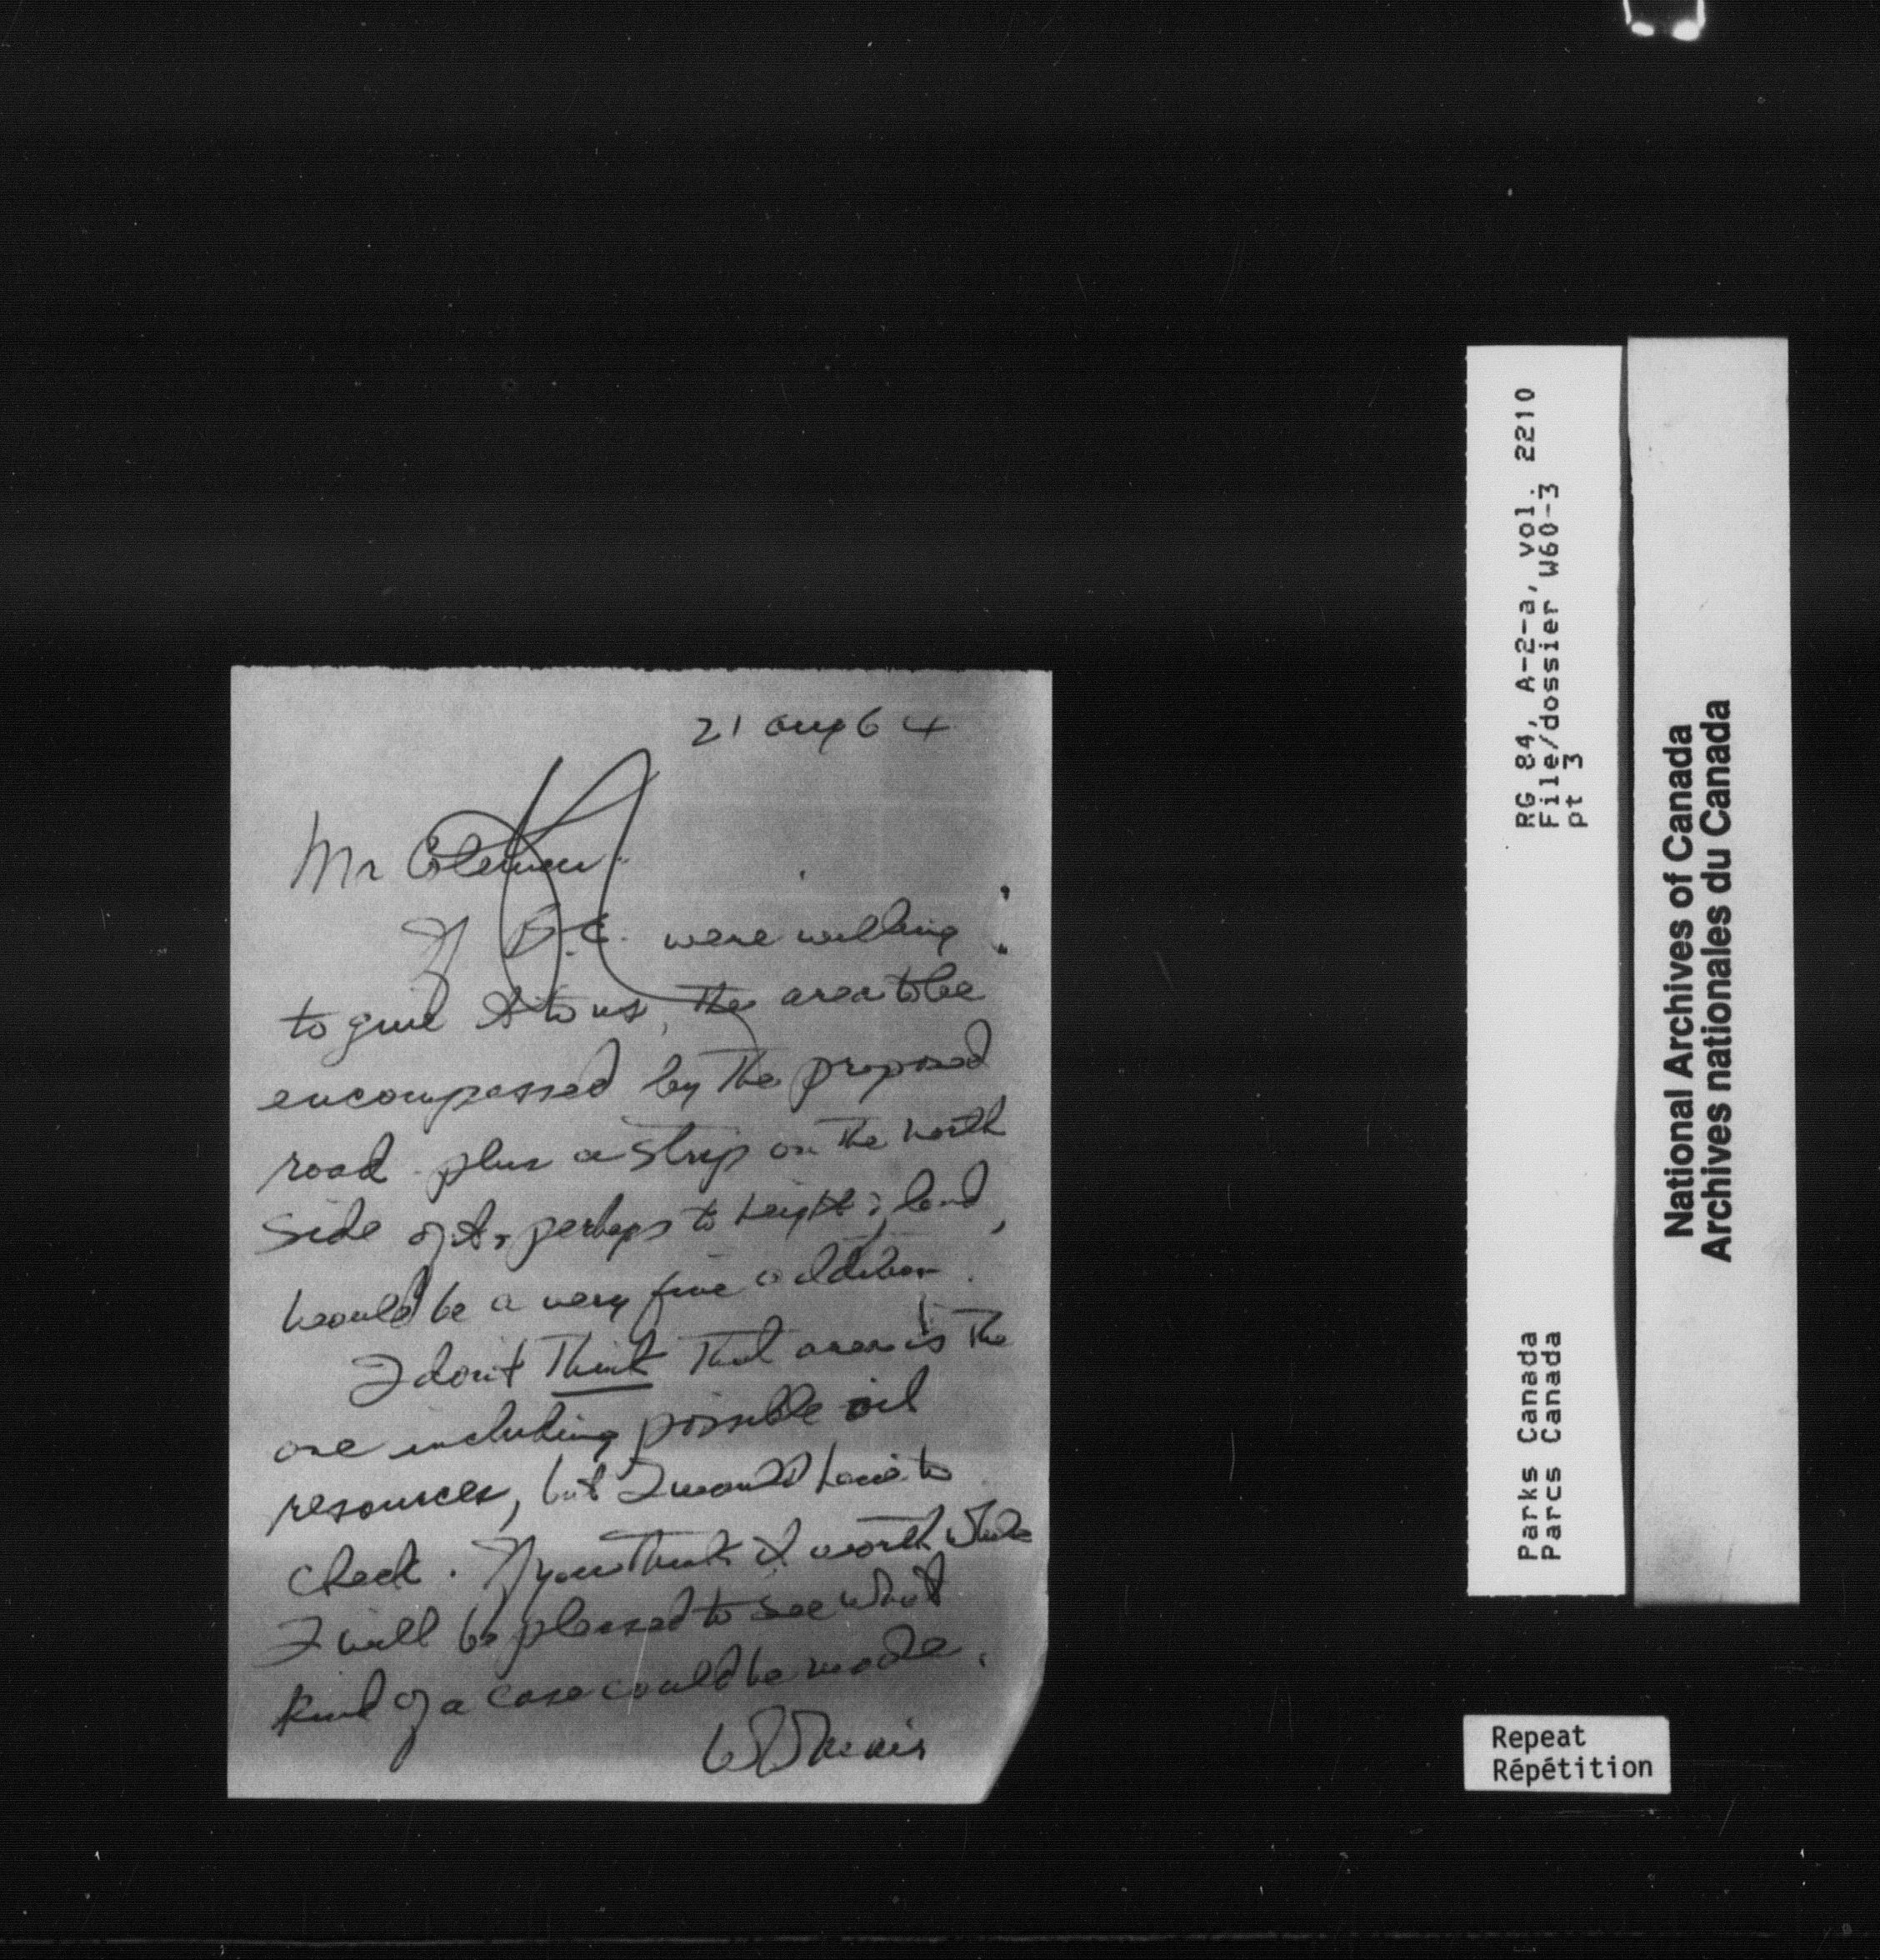 21 Aug 64
Mr Coleman
If B.C. were willing
to give it to us, the area to be
encompassed by the proposed
road plus a strip on the north
side of it, perhaps to height of land,
would be a very fine addition.
I don't think that area is the
one including possible oil
resources, but I would have to
check. If you think it worth while
I will be pleased to see what
kind of a case could be made.
RG 84, A-2-a, vol. 2210
File/dossier W60-3
pt 3
Parks Canada
Parcs Canada
National Archives of Canada
Archives nationales du Canada
Repeat
Répétition